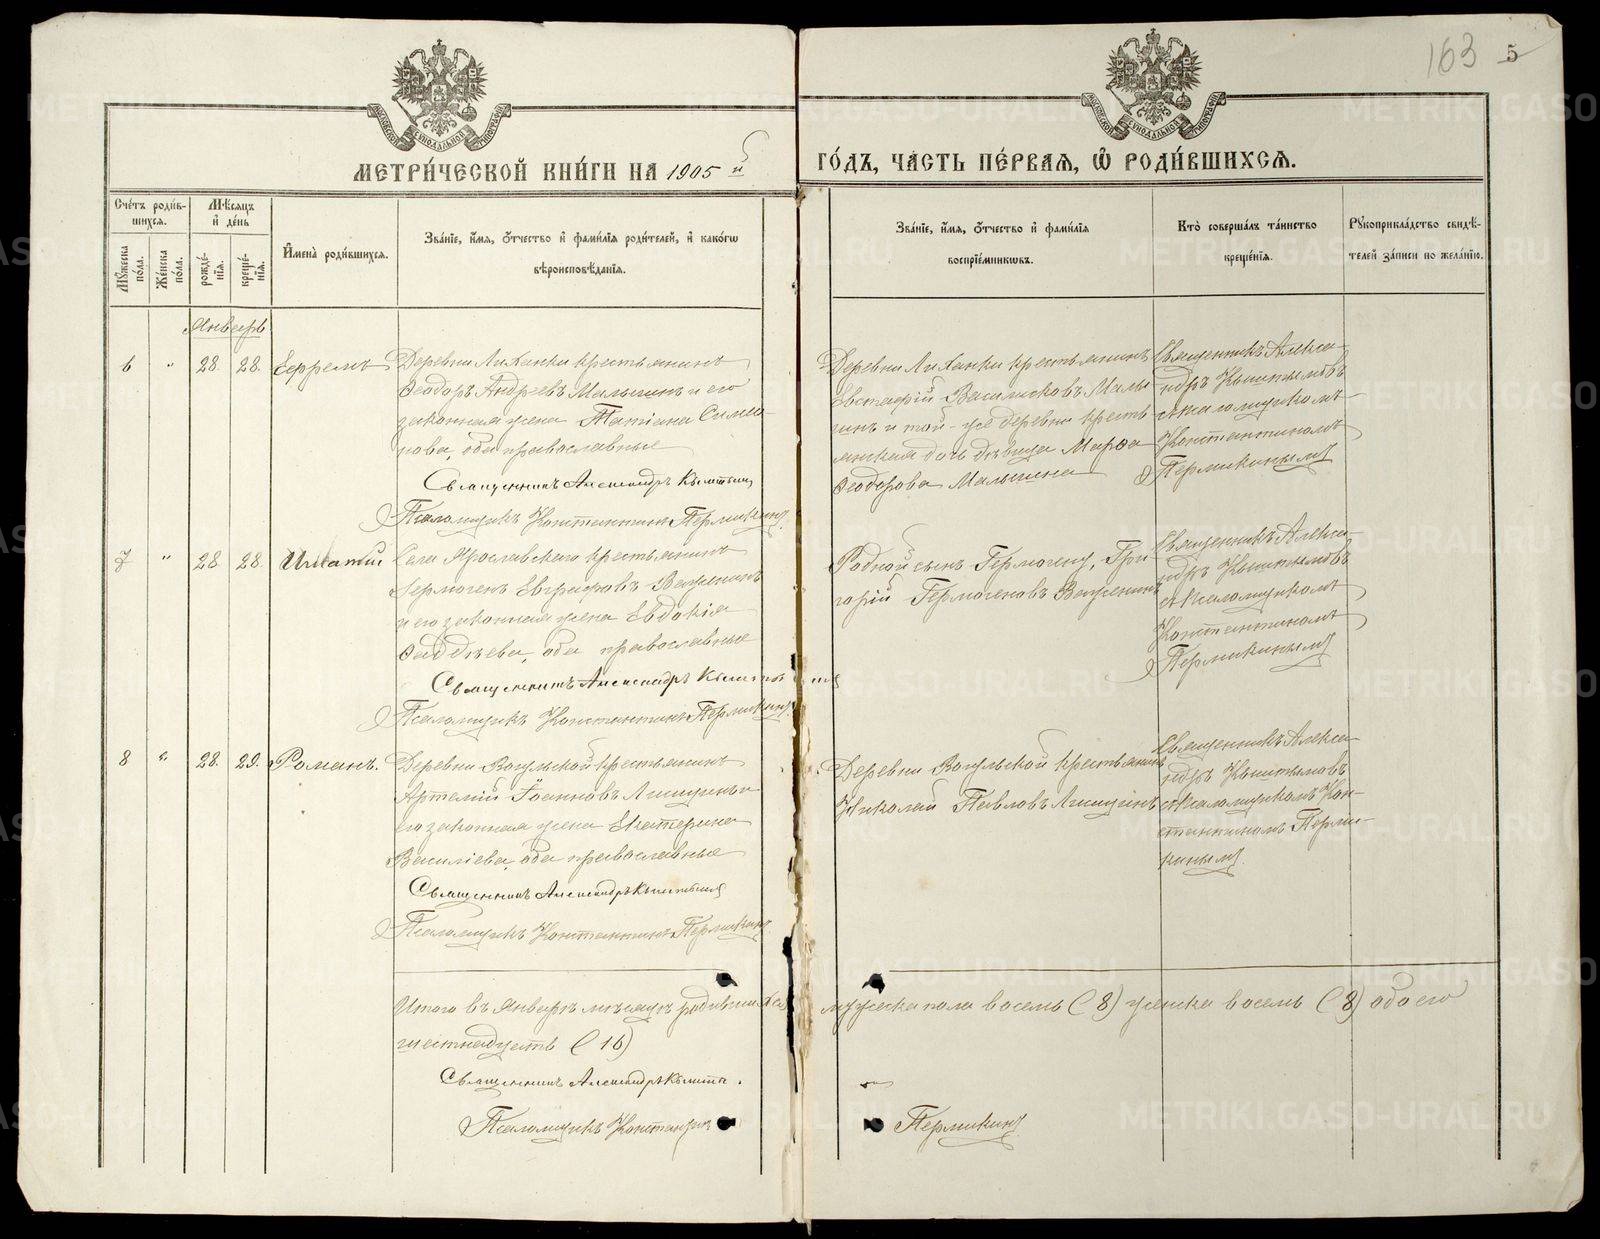 163 5
МЕТРИ́ЧЕСКОЙ КНИ́ГИ НА 1905 й ГО́ДЪ, ЧА́СТЬ ПЕ́РВАЯ, Ѽ РОДИ́ВШИХСЯ.
Сче́тъ роди́в-
шихся.
Мꙋ́жеска
по́ла.
Же́нска
по́ла.
Мѣ́сяцъ
и де́нь
рожде́-
нїя.
креще́-
нїя.
И҆мена̀ роди́вшихся.
Зва́нїе, и҆́мя, ѻ҆́тчество и҆ фами́лїя роди́телей, и҆ како́гѡ
вѣроисповѣ́данїя.
Зва́нїе, и҆́мя, ѻ҆́тчество и҆ фами́лїя
воспрїе́мникѡвъ.
Кто̀ соверша́лъ та́инство
креще́нїя.
Рꙋкоприкла́дство свидѣ́-
телей за́писи по жела́нїю.
Январь
6 " 28. 28. Ефремъ
Деревни Луканки крестьянинъ
Ѳеодоръ Андреевъ Малыгинъ и его
законная жена Татіана Симео-
нова, оба православные
Священникъ Александръ
Псаломщикъ Константинъ Пермикинъ
Деревни Луканки крестьянинъ
Евстафій Малы-
гинъ и той-же деревни кресть
янская дочь дѣвица Марѳа
Ѳеодорова Малыгина
Священникъ Алекса
ндръ Кыштымовъ
съ псаломщикомъ
Константиномъ
Пермикинымъ
7 " 28. 28. Игнатій
Села Ярославскаго крестьянинъ
Гермогенъ Евграфовъ Важенинъ
и его законная жена Евдокія
Ѳаддѣева, оба православные
Священникъ Александръ Кыштымовъ
Псаломщикъ Константинъ Пермикинъ
Родной сынъ Гермогену, Гри
горій Гермогеновъ Важенинъ
Священникъ Алекса
ндръ Кыштымовъ
съ псаломщикомъ
Константиномъ
Пермикинымъ
8 " 28. 29. Романъ.
Деревни Вогульской крестьянинъ
Артемій Іоанновъ Лищинъ и
его законная жена Екатерина
Василіева, оба православные
Священникъ Александръ Кыштымовъ
Псаломщикъ Константинъ Пермикинъ
Деревни Вогульской крестьянинъ
Николай Павловъ
Священникъ Алекса
ндръ Кыштымовъ
съ псаломщикомъ Кон-
стантиномъ Перми-
кинымъ
Итого въ Январѣ мѣсяцѣ родившихся мужеска пола восемь (8) женска восемь (8) обоего
шестнадцать (16)
Священникъ Александръ
Псаломщикъ Константинъ Пермикинъ
METRIKI.GASO-URAL.RU